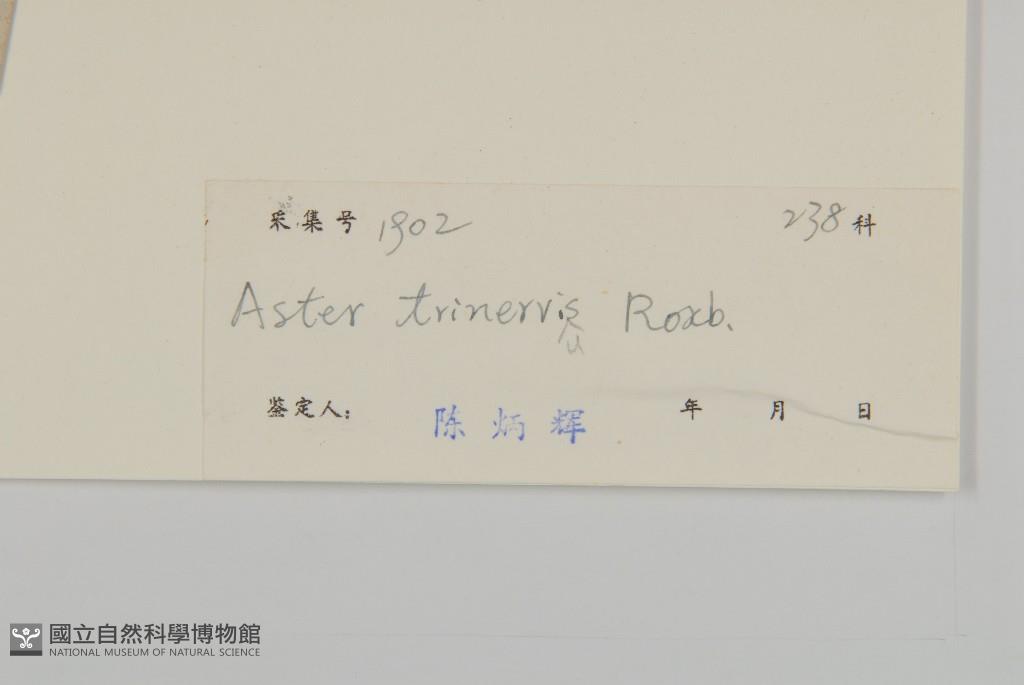 采集号 1902 238 科
Aster trinervis Roxb.
u
鉴定人： 陈炳辉 年 月 日
國立自然科學博物館
NATIONAL MUSEUM OF NATURAL SCIENCE